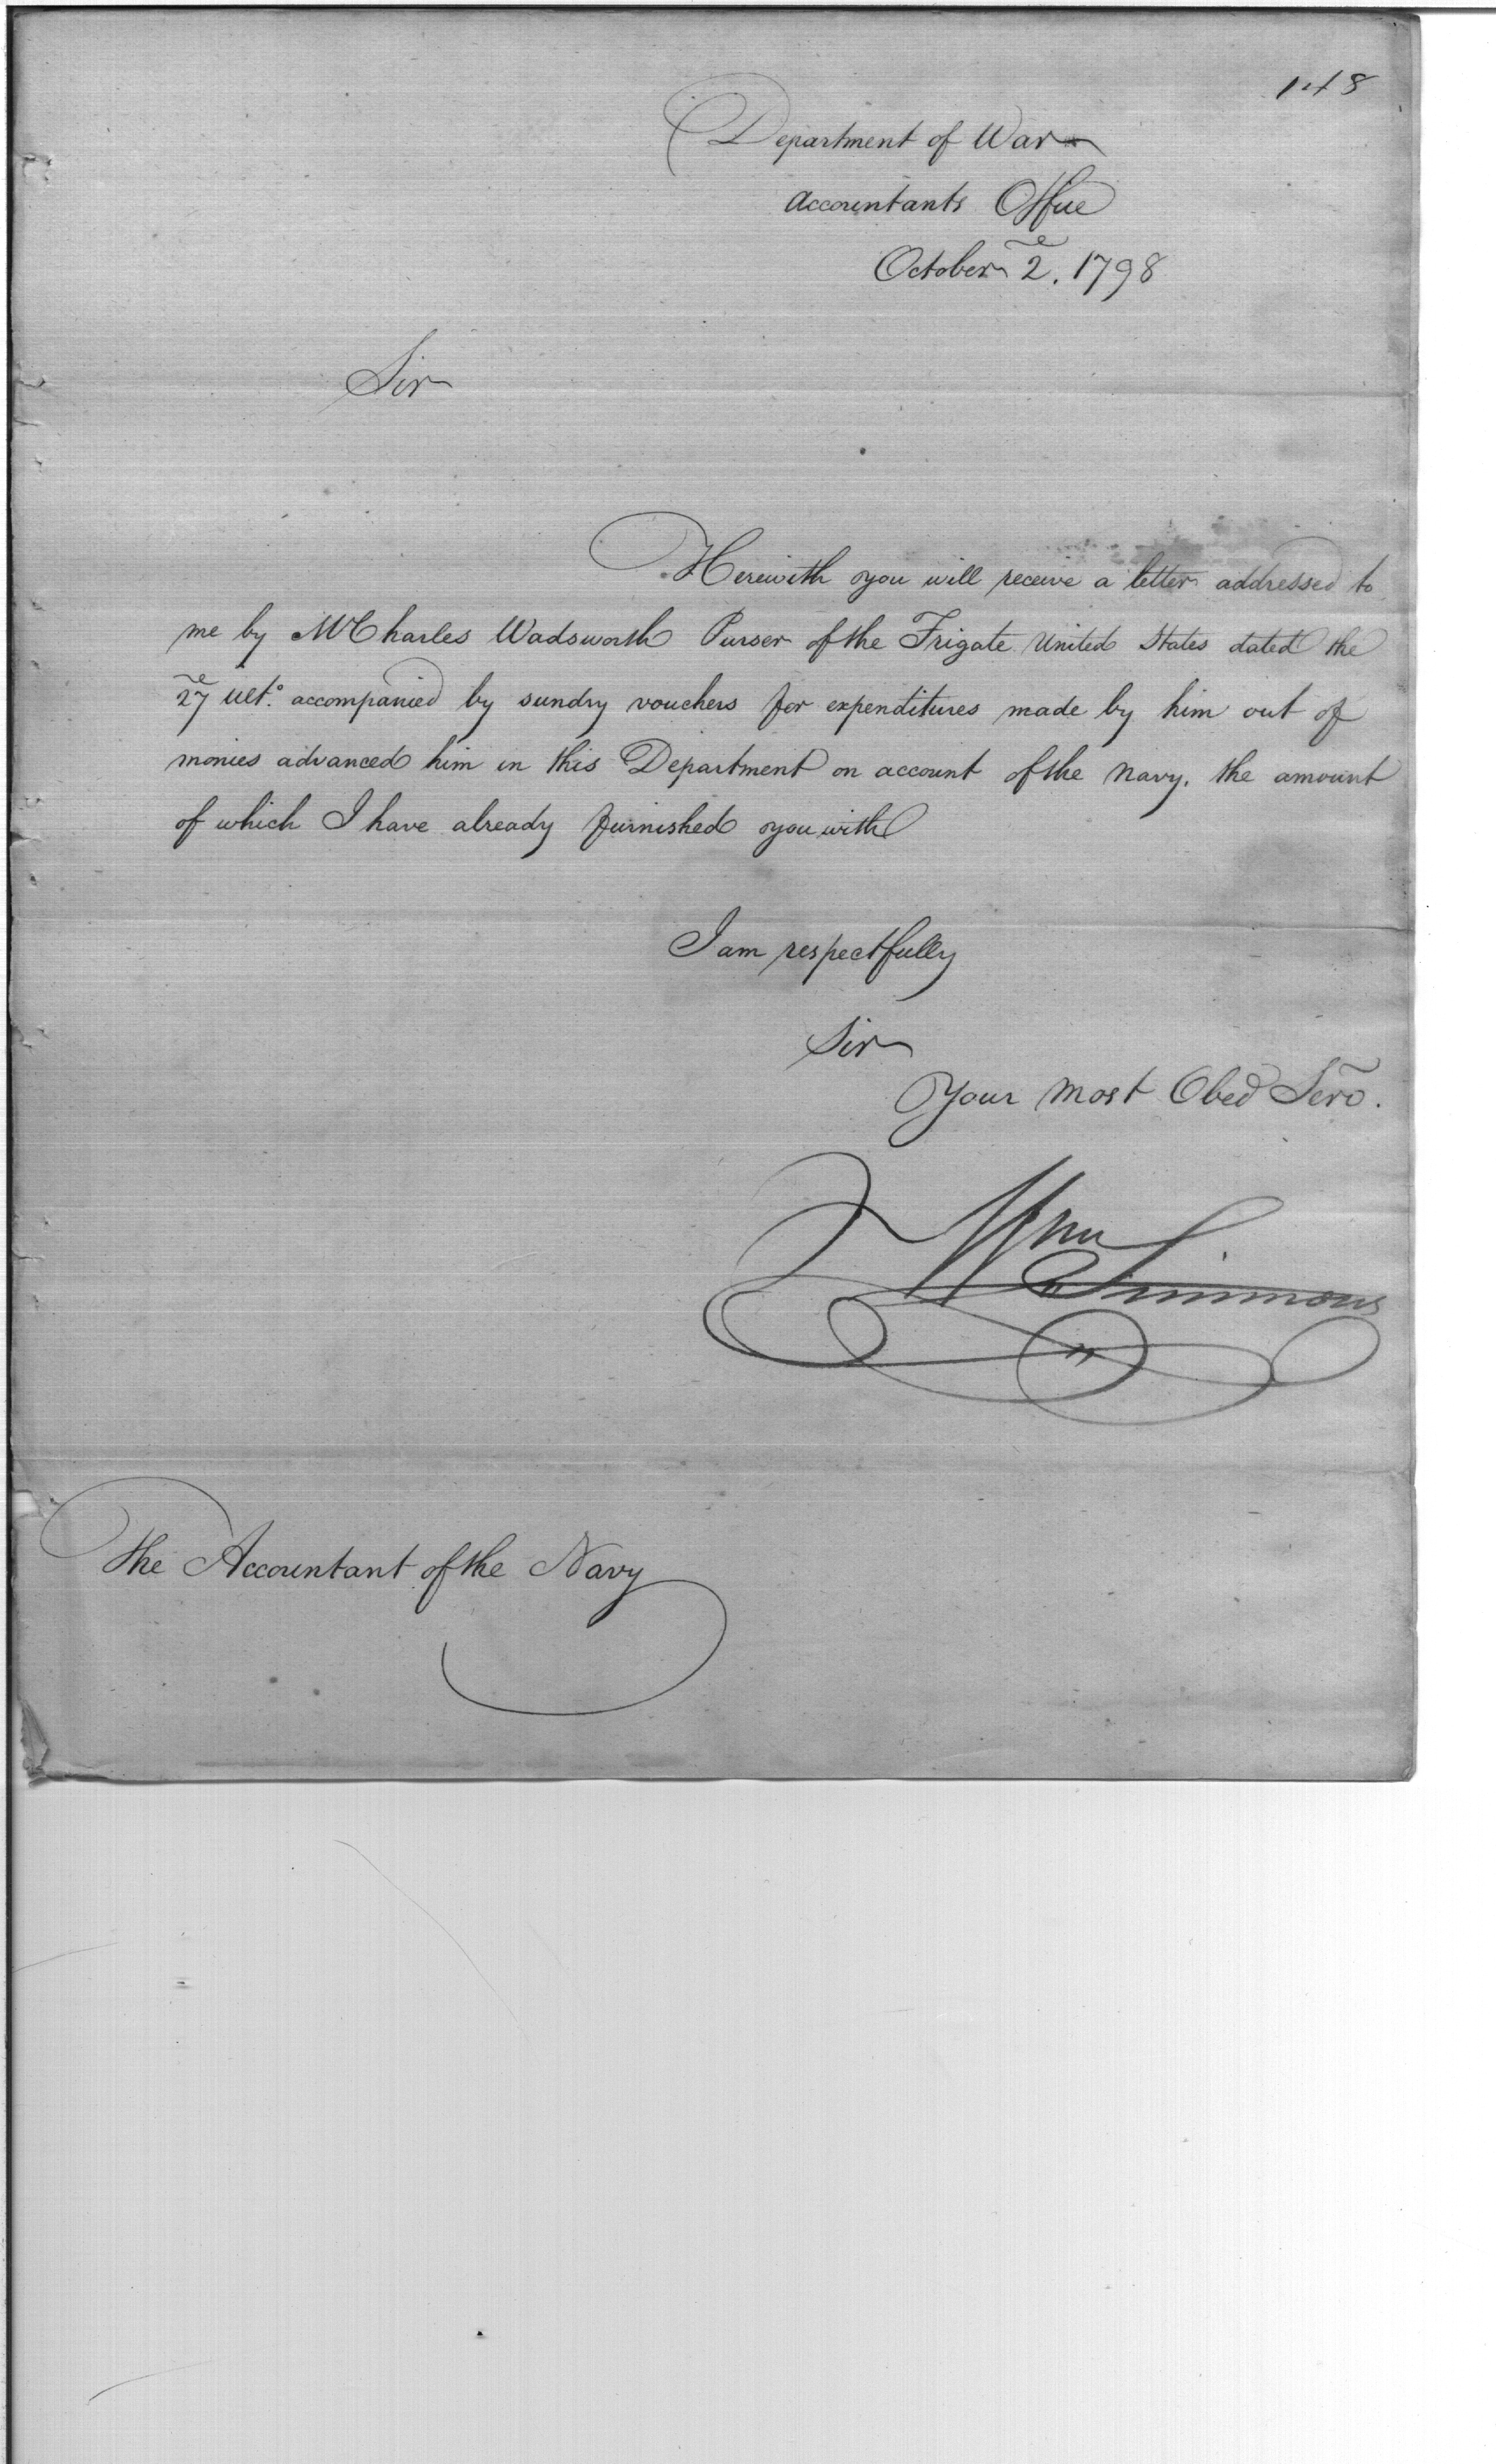 148
Department of War
Accountants Office
October 2, 1798
Sir
Herewith you will receive a letter addressed to
me by Mr Charles Wadsworth Purser of the Frigate United States dated the
27 Ulto. accompanied by sundry vouchers for expenditures made by him out of
monies advanced him in this Department on account of the Navy, the amount
of which I have already furnished you with
I am respectfully
Sir
Your Most Obed Serv.
Wm Simmons
The Accountant of the Navy